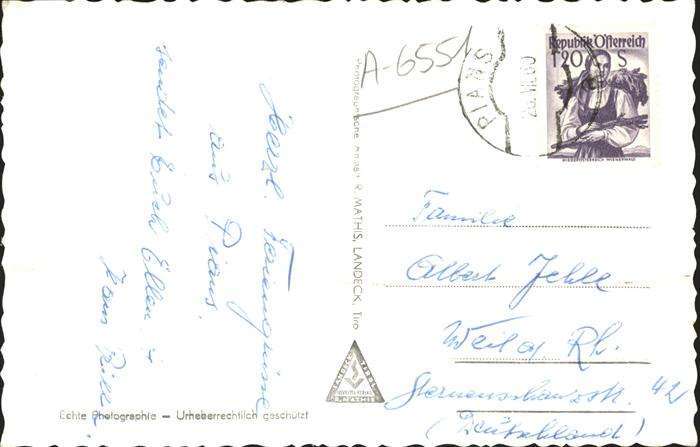 A-6551
PIANS
Republik Österreich
1'20 S
NIEDERÖSTERREICH WIENERWALD
Herzl. Feriengrüsse
aus Pians.
sendet Euch Ellen
Hans
Photographische Anstalt R. MATHIS, LANDECK, Tirol
Familie
Albert Jehle
Weil a/ Rh.
Sternenschanzstr. 42
(Deutschland)
R. MATHIS
Echte Photographie – Urheberrechtlich geschützt